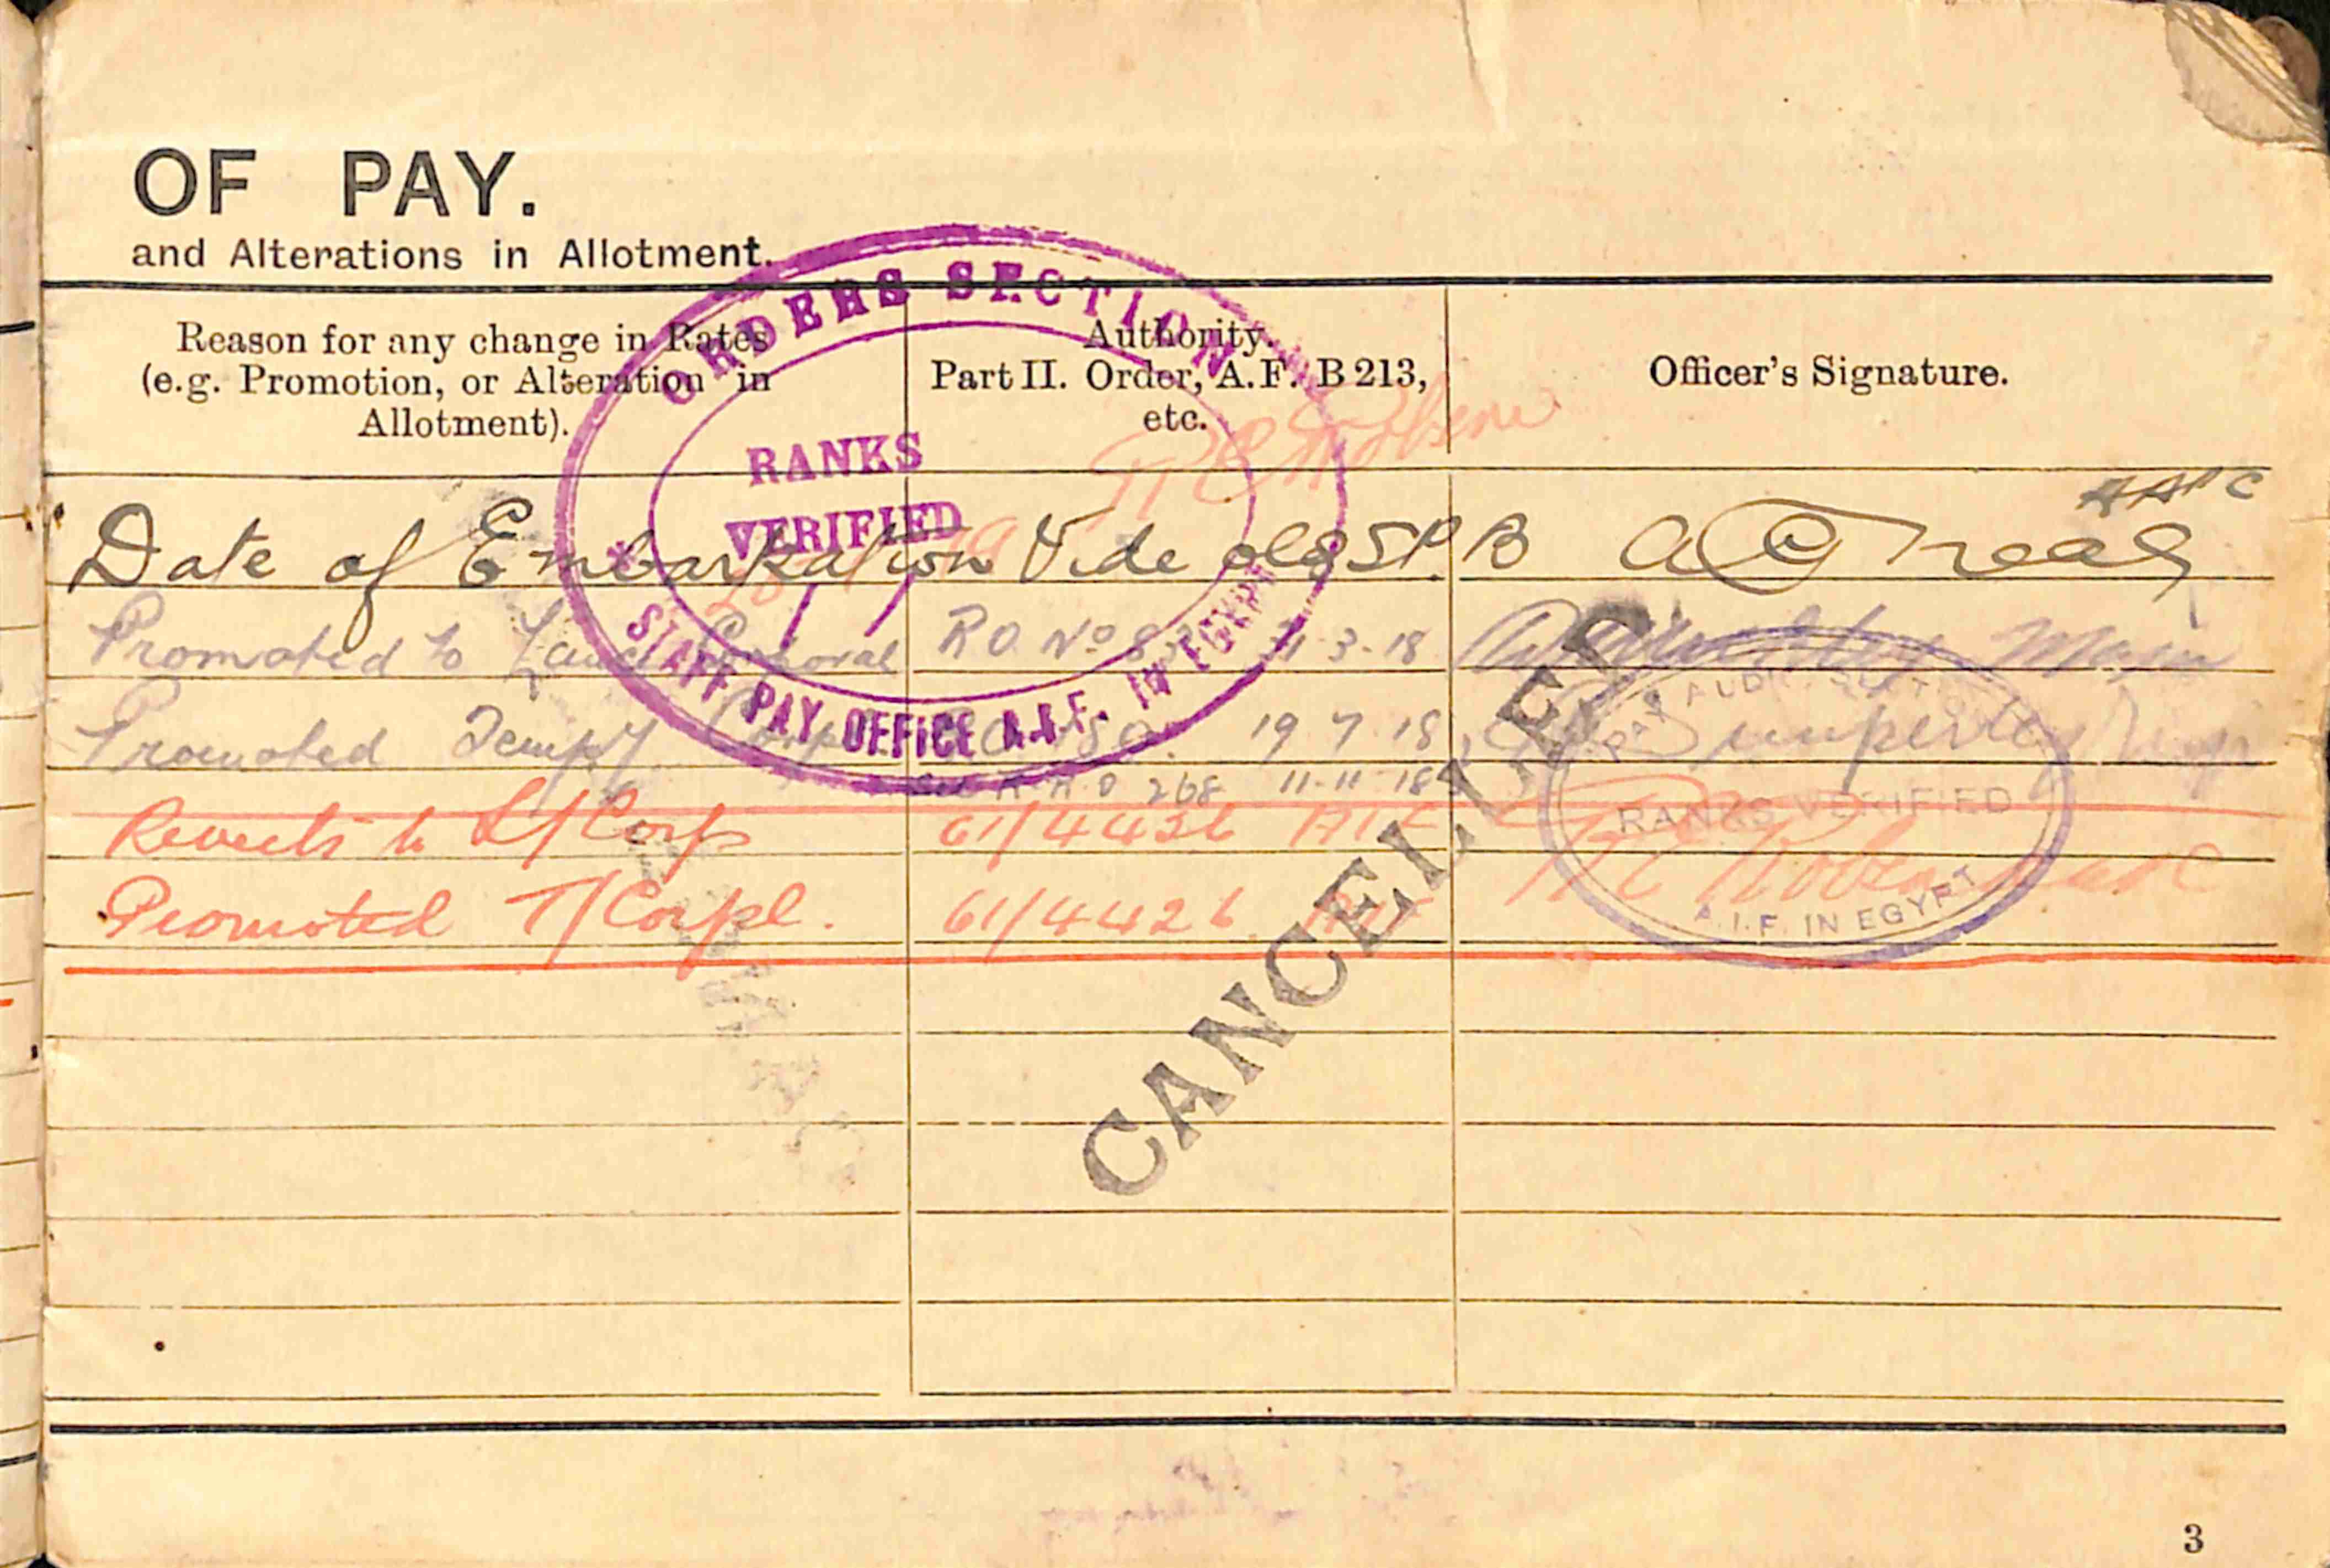 OF PAY.
and Alterations in Allotment.
Reason for any change in Rates
(e.g. Promotion, or Alteration in
Allotment).
Authority.
Part II. Order, A.F. B 213,
etc.
Officer's Signature.
ORDERS SECTION
RANKS
VERIFIED
STAFF PAY OFFICE A.I.F. IN EGYPT
Date of Embarkation Vide old S P. B
Promoted to Lance Corporal R O No 31-3-18
Promoted Tempy. 19 7 18
268 11-11-18
Reverts to L/Corp 61/4426 AIF
Promoted T/Corpl. 61/4426 AIF
PAY AUDIT SECT.
RANKS VERIFIED
A.I.F. IN EGYPT
CANCELLED
3